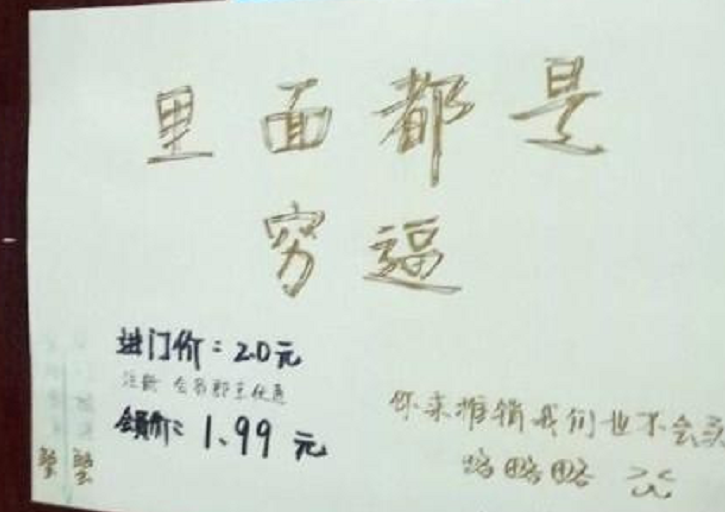 里面都是
穷逼
进门价：2.0元
注册 会员即享优惠
会员价：1.99元
你来推销我们也不会买
略略略